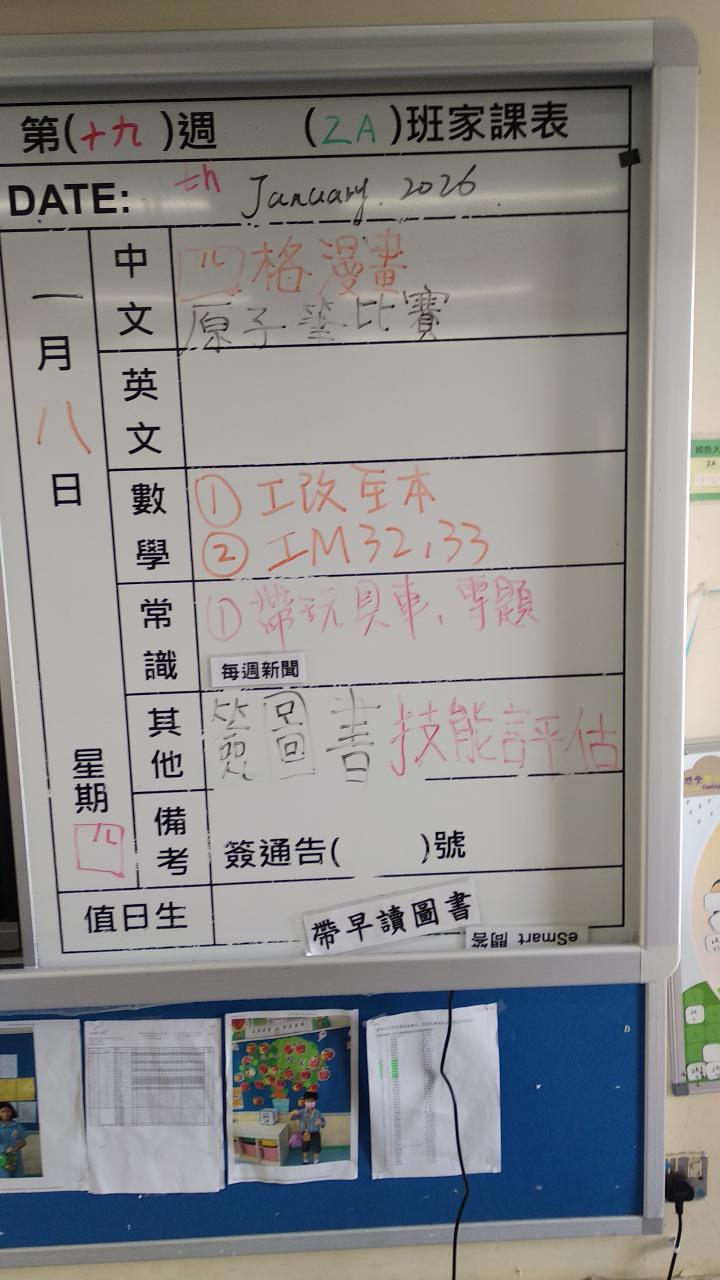 第(十九)週 (2A)班家課表
DATE: th January. 2026
一月八日
星期四
中文
四格漫畫
原子筆比賽
英文
數學
① 工改至本
② 工M32,33
常識
① 帶玩具車、專題
每週新聞
其他
簽圖書 技能評估
備考
簽通告( )號
值日生
帶早讀圖書
eSmart 問答